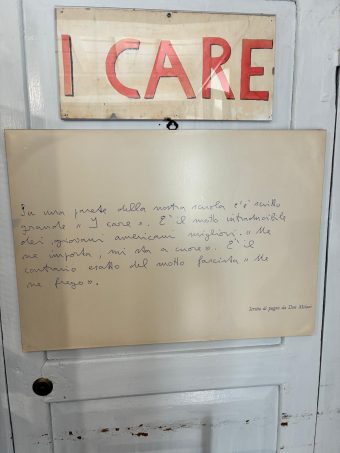 I CARE
Su una parete della nostra scuola c'è scritto
grande « I care ». È il motto intraducibile
dei giovani americani migliori. « Me
ne importa, mi sta a cuore ». È il
contrario esatto del motto fascista « Me
ne frego ».
Scritto di pugno da Don Milani